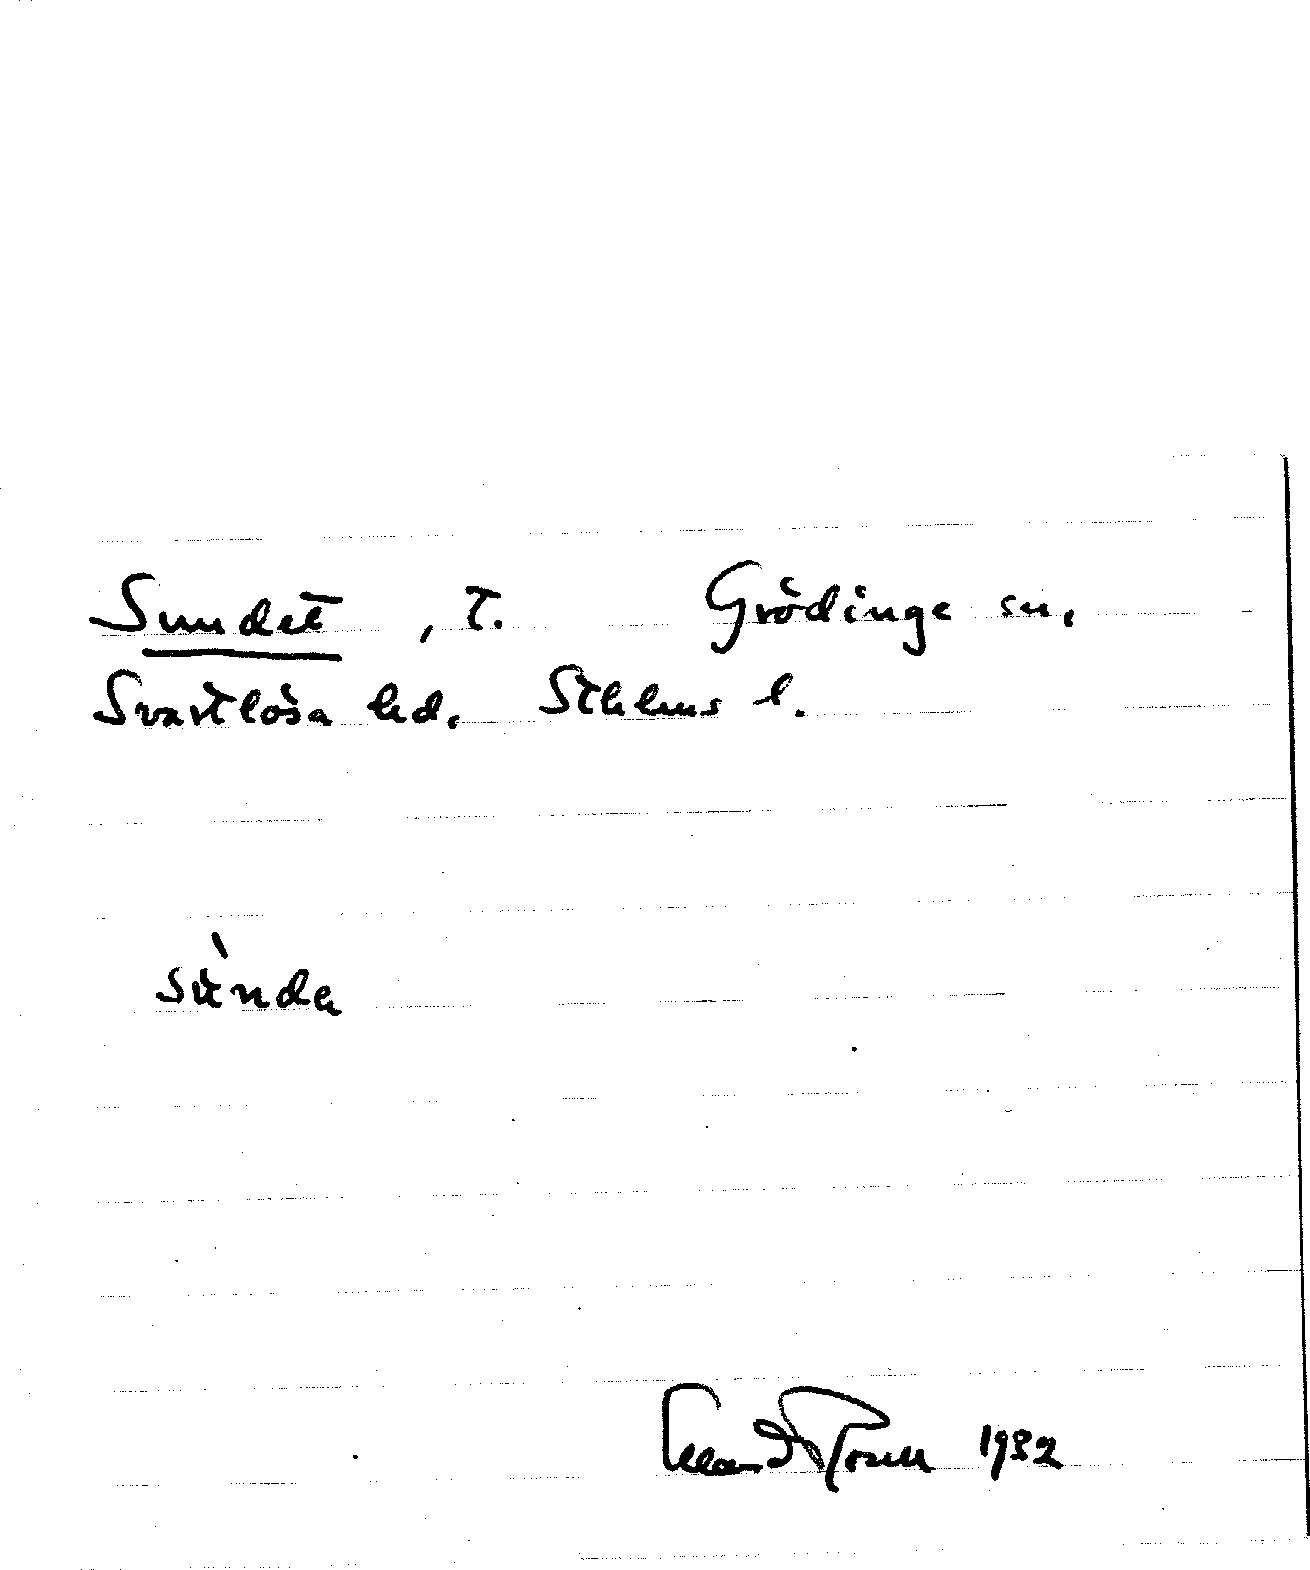 Sundet, t. Grödinge sn,
Svartlösa hd. Sthlms l.
sùnda
1932